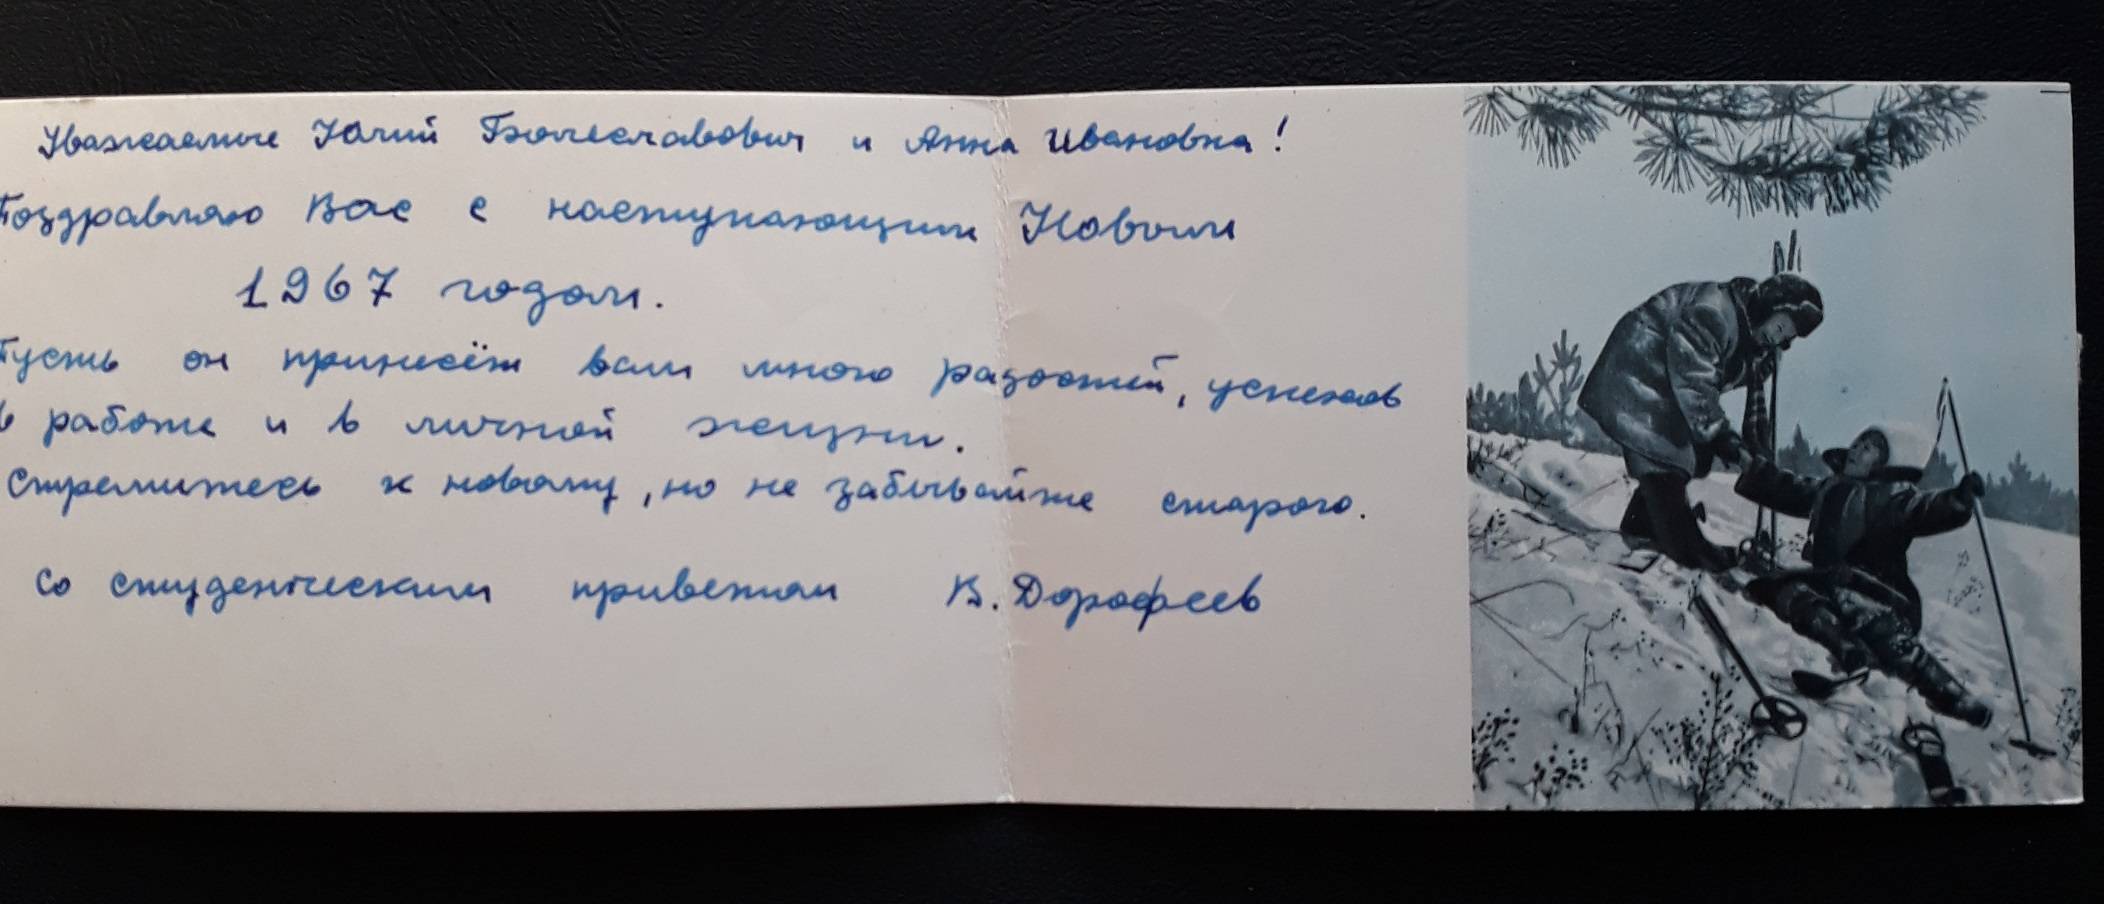 Уважаемые Юлий Болеславович и Анна Ивановна!
Поздравляю Вас с наступающим Новым
1967 годом.
Пусть он принесёт вам много радостей, успехов
в работе и в личной жизни.
Стремитесь к новому, но не забывайте старого.
Со студенческим приветом В. Дорофеев